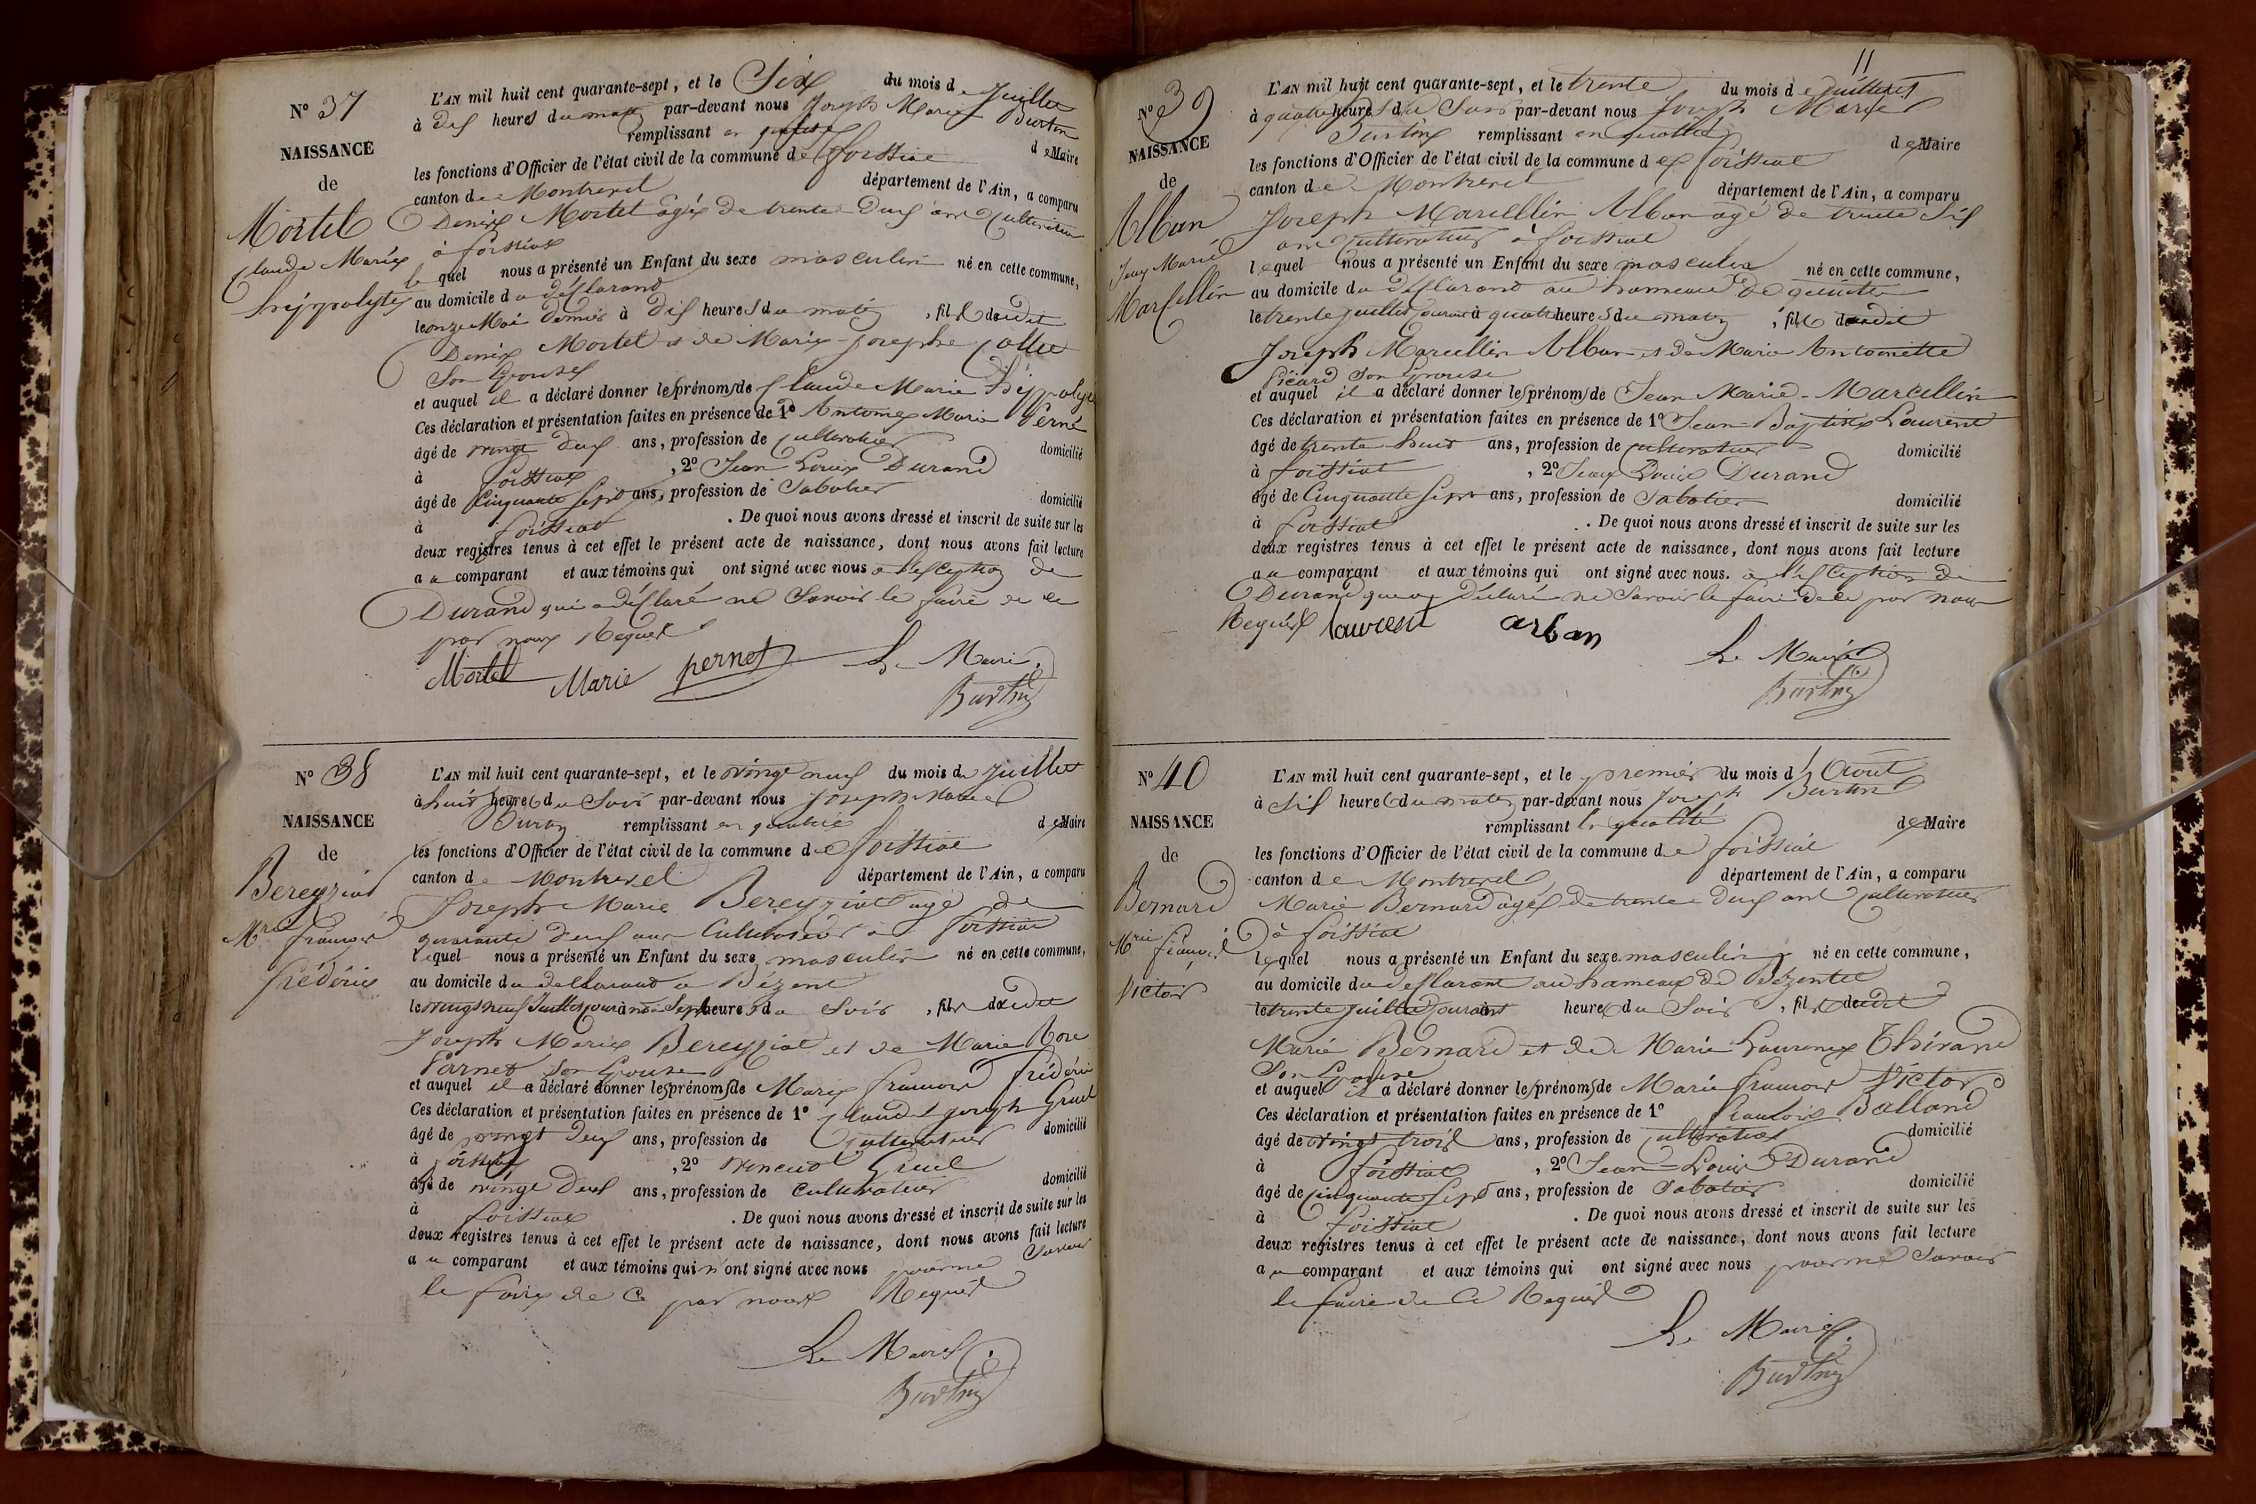 N° 37
NAISSANCE
de
Mortel
Claude Marie
hippolyte
L'AN mil huit cent quarante-sept, et le Six du mois de Juillet
à dix heures du matin par-devant nous Joseph Marie Burtin
remplissant en qualité de Maire
les fonctions d'Officier de l'état civil de la commune de foissiat
canton de Montrevel département de l'Ain, a comparu
Denis Mortel âgé de trente deux ans cultivateur
à foissiat
lequel nous a présenté un Enfant du sexe masculin né en cette commune,
au domicile du déclarant
le onze Mai dernier à dix heures du matin, fils dudit
Denis Mortel et de Marie josephe
Son Epouse
et auquel il a déclaré donner les prénoms de Claude Marie hippolyte
Ces déclaration et présentation faites en présence de 1° Antoine Marie Perne
âgé de vingt deux ans, profession de cultivateur domicilié
à foissiat, 2° Jean Louis Durand
âgé de Cinquante Sept ans, profession de Sabotier domicilié
à foissiat. De quoi nous avons dressé et inscrit de suite sur les
deux registres tenus à cet effet le présent acte de naissance, dont nous avons fait lecture
au comparant et aux témoins qui ont signé avec nous a l'exception de
Durand qui a déclaré ne Savoir le faire de ce
par nous Requis
Mortel Marie pernet Le Maire
Burtin
N° 38
NAISSANCE
de
Bereyziat
Mrie françois
frédéric
L'AN mil huit cent quarante-sept, et le vingt neuf du mois de Juillet
à huit heures du Soir par-devant nous Joseph Marie
Burtin remplissant en qualité de Maire
les fonctions d'Officier de l'état civil de la commune de foissiat
canton de Montrevel département de l'Ain, a comparu
Joseph Marie Bereyziat âgé de
quarante deux ans Cultivateur à foissiat
lequel nous a présenté un Enfant du sexe masculin né en cette commune,
au domicile du déclarant a Bézent
le vingt neuf Juillet courant à Sept heures du Soir, fils dudit
Joseph Marie Bereyziat et de Marie Rose
Parnet Son Epouse
et auquel il a déclaré donner les prénoms de Marie françois frédéric
Ces déclaration et présentation faites en présence de 1° Claude joseph Gruel
âgé de vingt deux ans, profession de Cultivateur domicilié
à foissiat, 2° vincent Gruel
âgé de vingt deux ans, profession de cultivateur domicilié
à foissiat. De quoi nous avons dressé et inscrit de suite sur les
deux registres tenus à cet effet le présent acte de naissance, dont nous avons fait lecture
au comparant et aux témoins qui n'ont signé avec nous pour ne Savoir
le faire de ce par nous Requis
Le Maire
Burtin
11
N° 39
NAISSANCE
de
Alban
Jean Marie
Marcellin
L'AN mil huit cent quarante-sept, et le trente du mois de Juillet
à quatre heures du Soir par-devant nous Joseph Marie
Burtin remplissant en qualité de Maire
les fonctions d'Officier de l'état civil de la commune de foissiat
canton de Montrevel département de l'Ain, a comparu
Joseph Marcellin Alban agé de trente Six
ans cultivateur à foissiat
lequel nous a présenté un Enfant du sexe masculin né en cette commune,
au domicile du déclarant au hameau de
le trente juillet courant à quatre heures du matin, fils dudit
Joseph Marcellin Alban et de Marie Antoinette
Picard Son Epouse
et auquel il a déclaré donner les prénoms de Jean Marie Marcellin
Ces déclaration et présentation faites en présence de 1° Jean Baptiste Laurent
âgé de trente huit ans, profession de cultivateur domicilié
à foissiat, 2° Jean Louis Durand
âgé de Cinquante Sept ans, profession de Sabotier domicilié
à foissiat. De quoi nous avons dressé et inscrit de suite sur les
deux registres tenus à cet effet le présent acte de naissance, dont nous avons fait lecture
au comparant et aux témoins qui ont signé avec nous. a l'exception de
Durand qui a déclaré ne Savoir le faire de ce par nous
Requis laurent arban
Le Maire
Burtin
N° 40
NAISSANCE
de
Bernard
Mrie françois
Victor
L'AN mil huit cent quarante-sept, et le premier du mois d'Août
à Six heures du matin par-devant nous Joseph Burtin
remplissant la qualité de Maire
les fonctions d'Officier de l'état civil de la commune de foissiat
canton de Montrevel département de l'Ain, a comparu
Marie Bernard agé de trente deux ans cultivateur
à foissiat
lequel nous a présenté un Enfant du sexe masculin né en cette commune,
au domicile du déclarant au hameau de Bézentet
le trente juillet heures du Soir, fils dudit
Marie Bernard et de Marie Laurence Thivand
Son Epouse
et auquel il a déclaré donner les prénoms de Marie françois Victor
Ces déclaration et présentation faites en présence de 1° françois Balland
âgé de vingt trois ans, profession de cultivateur domicilié
à foissiat, 2° Jean Louis Durand
âgé de cinquante Sept ans, profession de Sabotier domicilié
à foissiat. De quoi nous avons dressé et inscrit de suite sur les
deux registres tenus à cet effet le présent acte de naissance, dont nous avons fait lecture
au comparant et aux témoins qui ont signé avec nous pour ne Savoir
le faire de Ce Requis
Le Maire
Burtin